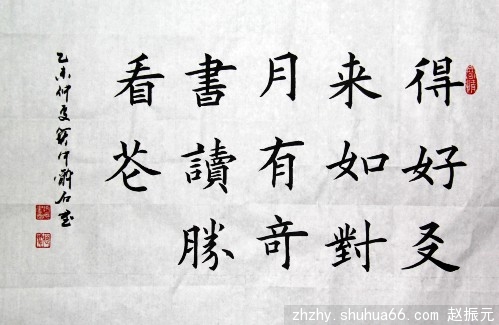 得好友
来如對
月有奇
書讀勝
看花
乙未仲夏
zhzhy.shuhua66.com 赵振元